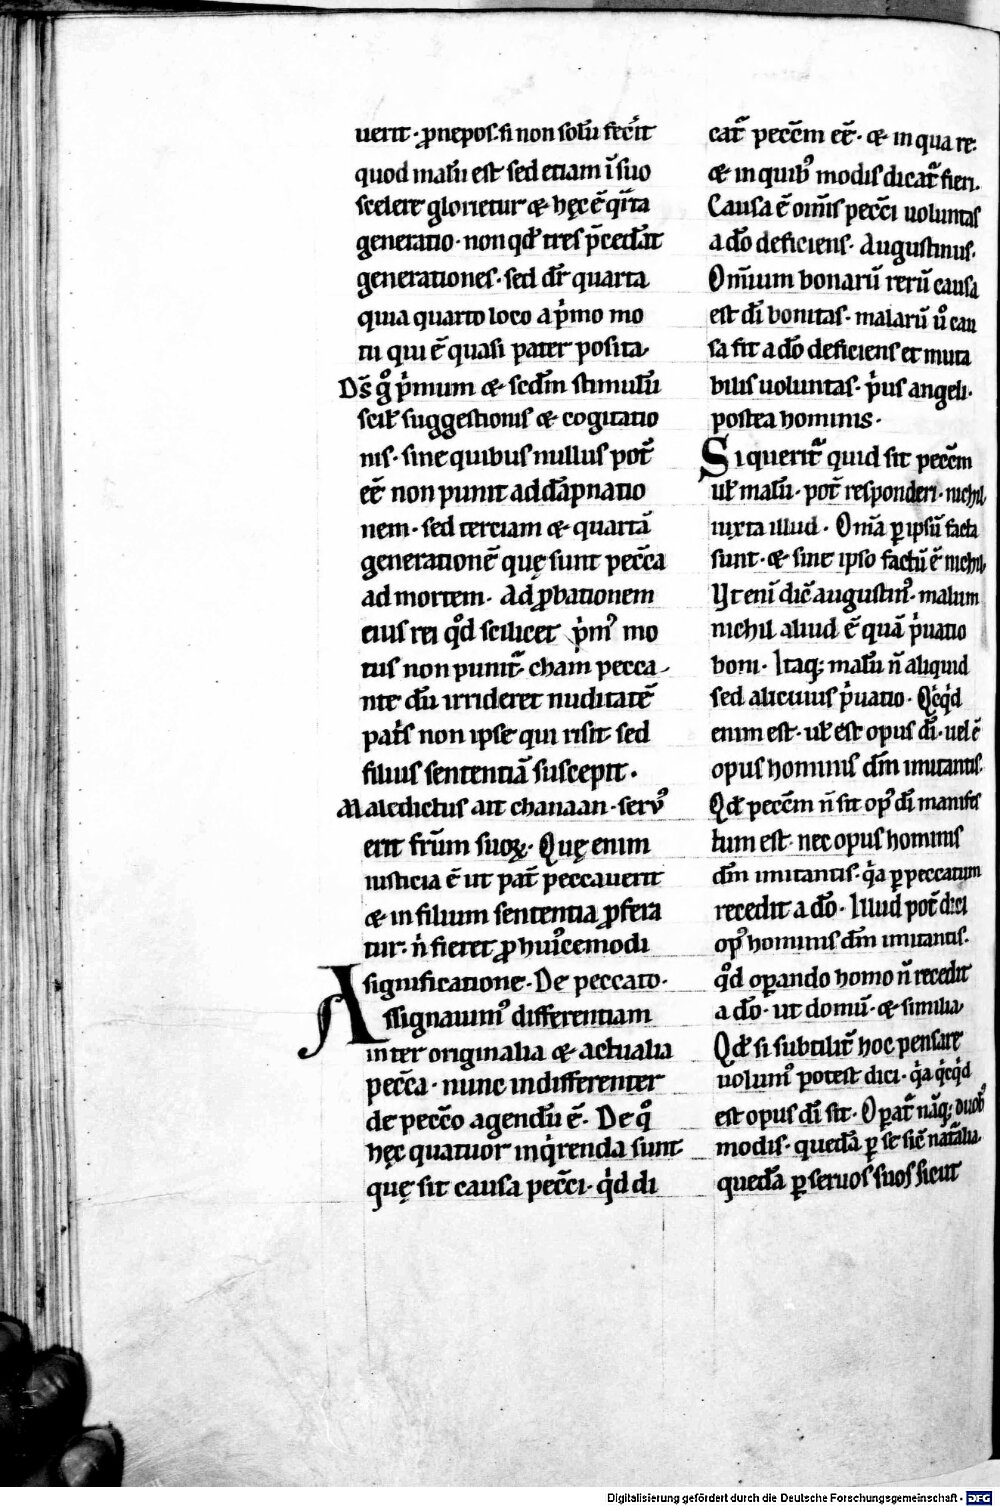 uerit · ꝓnepos · si non solū fec̄it
quod malū est sed etiam ī suo
scelere glorietur & hęc ē q̄rta
generatio · non qd̄ tres p̄ced̄at
generationes · sed dr̄ quarta
quia quarto loco a pͥmo mo
tu qui ē quasi pater posita
Ds̄ gͦ pͥmum & scd̄m stimulū
scilꝉ suggestionis & cogitatio
nis · sine quibus nullus pot̄
eē non punit ad dāpnatio
nem · sed terciam & quartā
generationē quę sunt pecc̄a
ad mortem · Ad ꝓbationem
eius rei qͦd scilicet pͥmꝰ mo
tus non punit̄ · cham pecca-
nte dū irrideret nuditatē
patͥs non ipse qui risit sed
filius sententiā suscepit ·
Maledictus ait chanaan · seruꝰ
erit fr̄um suoꝝ · Quę enim
iusticia ē ut pat̄ peccauerit
& in filium sententia ꝓfera
tur · n̄ fieret ꝓ huiꝰcemodi
significatione · De peccato ·
Assignauimꝰ differentiam
inter originalia & actualia
pecc̄a · nunc indifferenter
de pecc̄o agendū ē · De qͦ
hęc quatuor inqͥrenda sunt ·
quę sit causa pecc̄i · qͥd di
cat̄ pecc̄m eē · & in qua re ·
& in quibꝰ modis dicat̄ fieri ·
Causa ē om̄is pecc̄i uoluntas
a dō deficiens · Augustinus ·
Om̄ium bonarū rerū causa
est dī bonitas · malarū uͦ cau
sa fit a dō deficiens et muta
bilis uoluntas · pͥus angeli ·
postea hominis ·
Si querit̄ quid sit pecc̄m
uꝉ malū · pot̄ responderi · nichil
iuxta illud · Om̄a ꝑ ipsū facta
sunt · & sine ipso factū ē nichil
Vt enī dic̄ augustinꝰ · malum
nichil aliud ē quā pͥuatio
boni · Itaq; malū n̄ aliquid
sed alicuius pͥuatio · Qͥcqͥd
enim est · uꝉ est opus dī · uel ē
opus hominis dm̄ imitantis ·
Qd̄ pecc̄m n̄ sit opꝰ dī manifes
tum est · nec opus hominis
dm̄ imitantis · qͥa ꝑ peccatum
recedit a dō · Illud pot̄ dici
opꝰ hominis dm̄ imitantis ·
qͦd oꝑando homo n̄ recedit
a dō · ut domū · & similia ·
Qd̄ si subtilit̄ hoc pensare
uolumꝰ potest dici · qͥa qͥcqͥd
est opus dī sit · Oꝑat̄ nāq; duobꝰ
modis · quedā ꝑ se sic̄ nat̄alia
quedā ꝑ seruos suos sicut
Digitalisierung gefördert durch die Deutsche Forschungsgemeinschaft - DFG